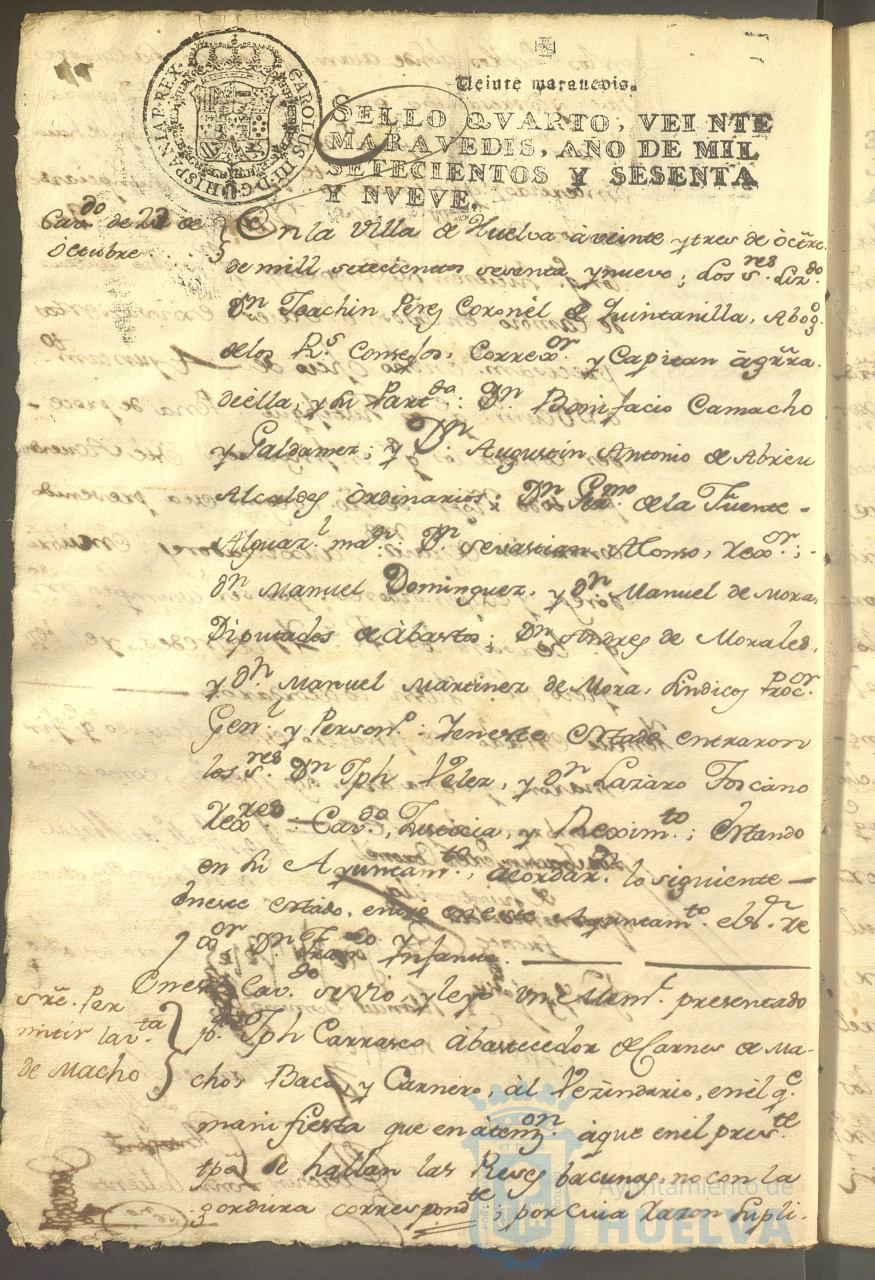 CAROLUS III. D. G. HISPANIAR. REX.
Veinte maravedis.
SELLO QVARTO, VEINTE
MARAVEDIS, AÑO DE MIL
SETECIENTOS Y SESENTA
Y NVEVE.
Cavdo. de 23 de
Octubre
En la Villa de Huelva à veinte y tres de òctre.
de mill setecientos sesenta y nueve; Los sres. Lizdo.
Dn Joachin Pérez Coronèl de Quintanilla, Abogo.
delos Rs. Consejos, Correxor. y Capitan à grra.
deella, y su Partdo: Dn Bonifacio Camacho
y Galdamez; y Dn. Augustin Antonio de Abrieu
Alcaldes òrdinarios: Dn de la Fuente -
Alguazl. mar: Dn Sevastian Alonso, Rexor.;
dn Manuel Dominguez, y dn Manuel de Mora,
Diputados de àbastos; Dn Andres de Morales,
y dn Manuel Martinez de Mora, Sindicos Procor.
Genl. y Persono: Yeneste estado entraron
los sres. Dn Jph Velez, y dn Lazaro Toscano
Rexres. - Cavdo., Justicia, y Reximto.; estando
en su Ayuntamto., acordaron. lo siguiente —
Eneste estado, entrò en este Ayuntamto. el Sr. Re
xor. Dn Infante.
Sre. Per
mitir la vta
de Macho
Eneste Cavdo. se viò, y leyò un Meml. presentado
pr. Jph Carrasco àbastecedor de Carnes de Ma-
chos Baca, y Carnero, àl Vezindario, enèl qe.
manifiesta que en atenzon. àque enèl preste
tpo. se hallan las Reses bacunas, no con la
gordura correspondte; por cuia razon supli-
Ayuntamiento de
HUELVA